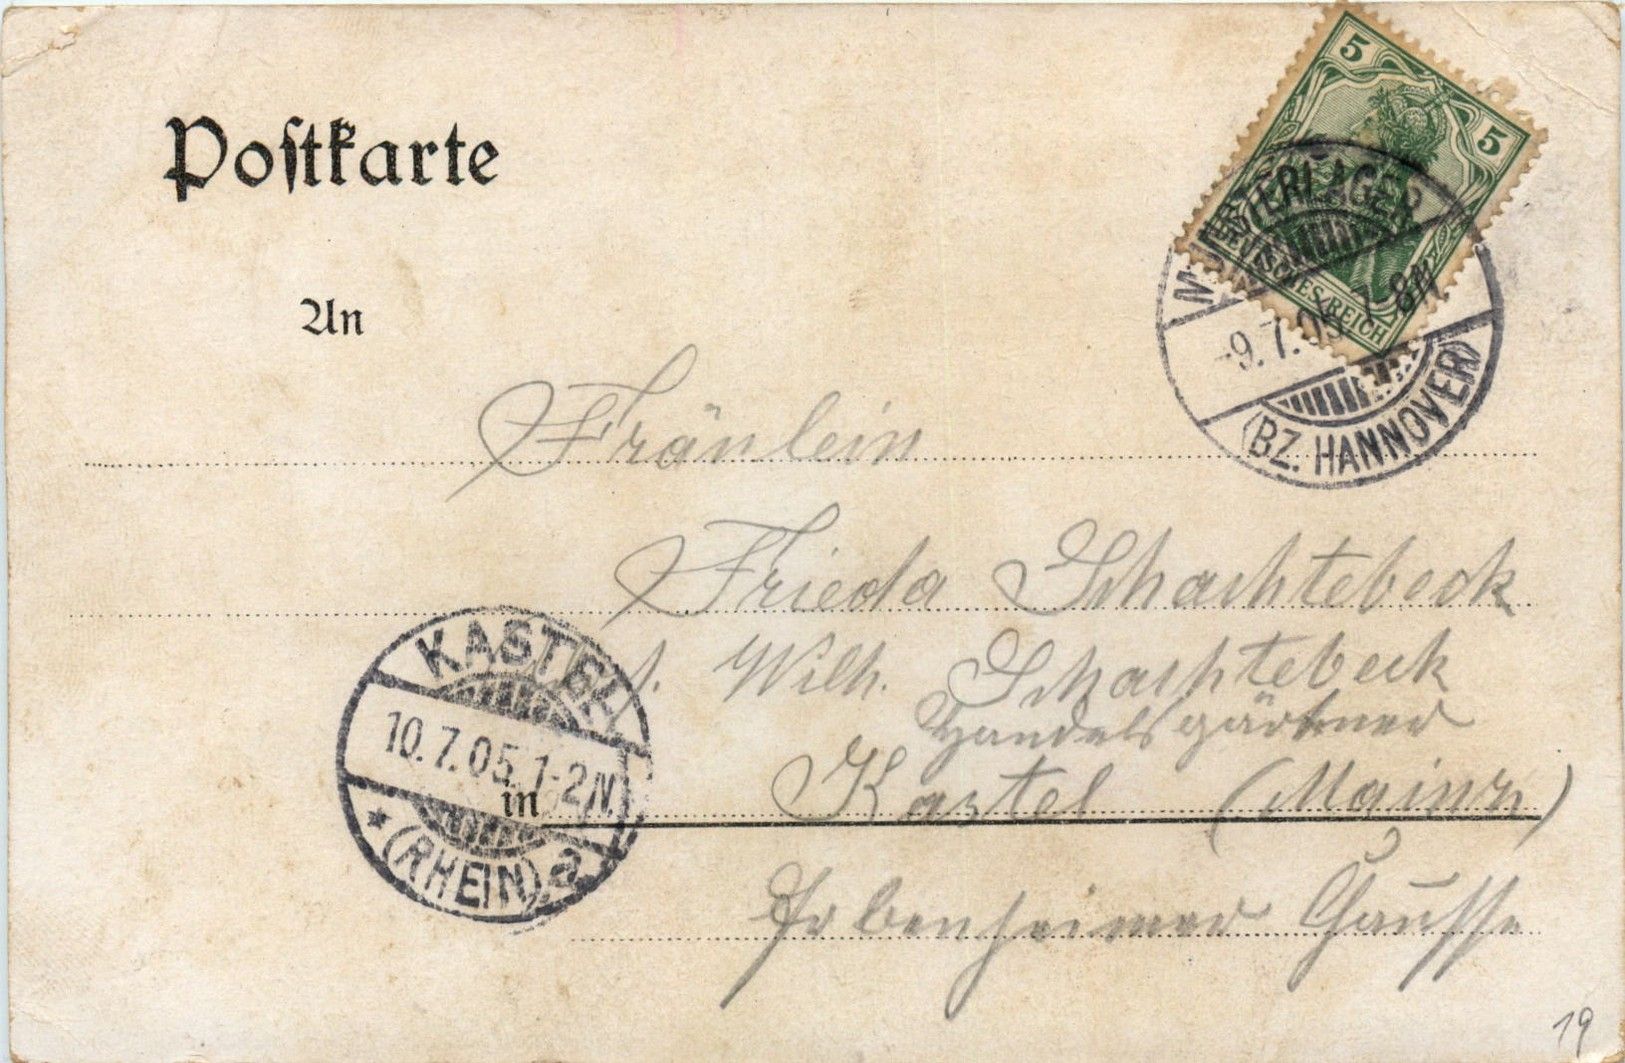 Postkarte
5
5
DEUTSCHES REICH
MUNSTERLAGER
-9.7.05 7-8N
(BZ. HANNOVER)
An
Fräulein
Frieda Schachtebeck
Wilh. Schachtebeck
Handelsgärtner
in Kastel (Mainz)
Erbenheimer Chaussee
KASTEL
10.7.05.1-2N.
(RHEIN) a
19